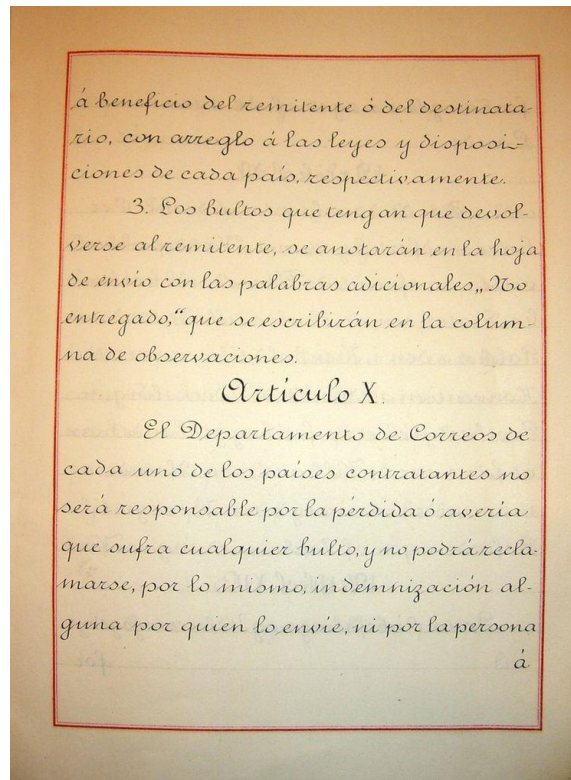 á beneficio del remitente ó del destinata-
rio, con arreglo á las leyes y disposi-
ciones de cada país, respectivamente.
3. Los bultos que tengan que devol-
verse al remitente, se anotarán en la hoja
de envío con las palabras adicionales „No
entregado,“ que se escribirán en la colum-
na de observaciones.
Artículo X.
El Departamento de Correos de
cada uno de los países contratantes no
será responsable por la pérdida ó avería
que sufra cualquier bulto, y no podrá recla-
marse, por lo mismo, indemnización al-
guna por quien lo envíe, ni por la persona
á